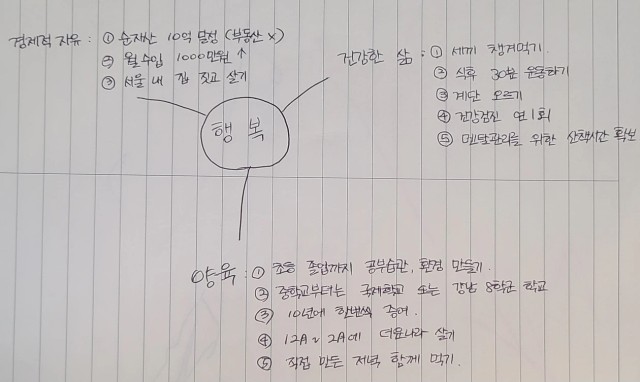 경제적 자유 : ① 순자산 10억 달성 (부동산 X)
② 월 수입 1000만원 ↑
③ 서울 내 집 짓고 살기
건강한 삶 : ① 세끼 챙겨먹기.
② 식후 30분 운동하기
③ 계단 오르기
④ 건강검진 연 1회
⑤ 멘탈관리를 위한 산책시간 확보
행복
양육 : ① 초등 졸업까지 공부습관, 환경 만들기.
② 중학교부터는 국제학교 또는 강남 8학군 학교
③ 10년에 한번씩 증여.
④ 12A ~ 2A에 더운나라 살기
⑤ 직접 만든 저녁 함께 먹기.